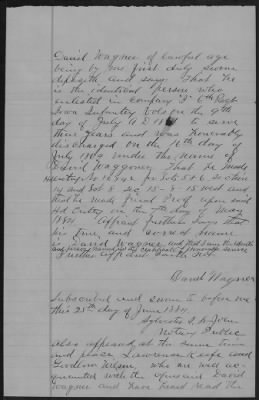 David Wagner of lawful age
being by me first duly sworn
deposeth and says That he
is the identical person who
enlisted in Company "I" 6th Regt
Iowa Infantry Vols on the 9th
day of July A D 18 to serve
three years and was honorably
discharged on the 16th day of
July 18 under the name of
David Waggoner That he made
Entry No for Lots 5 & 6 section
and Lot 8 sec 15 - 8 - 15 west and
that he made final Proof upon said
Hd Entry on the 7th day of May
1884 Affiant further says that
his true and correct name
is David Wagner and
Further Affiant Saith Not
David Wagner
Subscribed and sworn to before me
this 25th day of June 1884
Sylvester S. St John
Notary Public
Also appeared at the same time
and place, Lawrence Keefe and
Nelson, who are well ac-
quainted with the Affiant David
Wagner and have heard read the